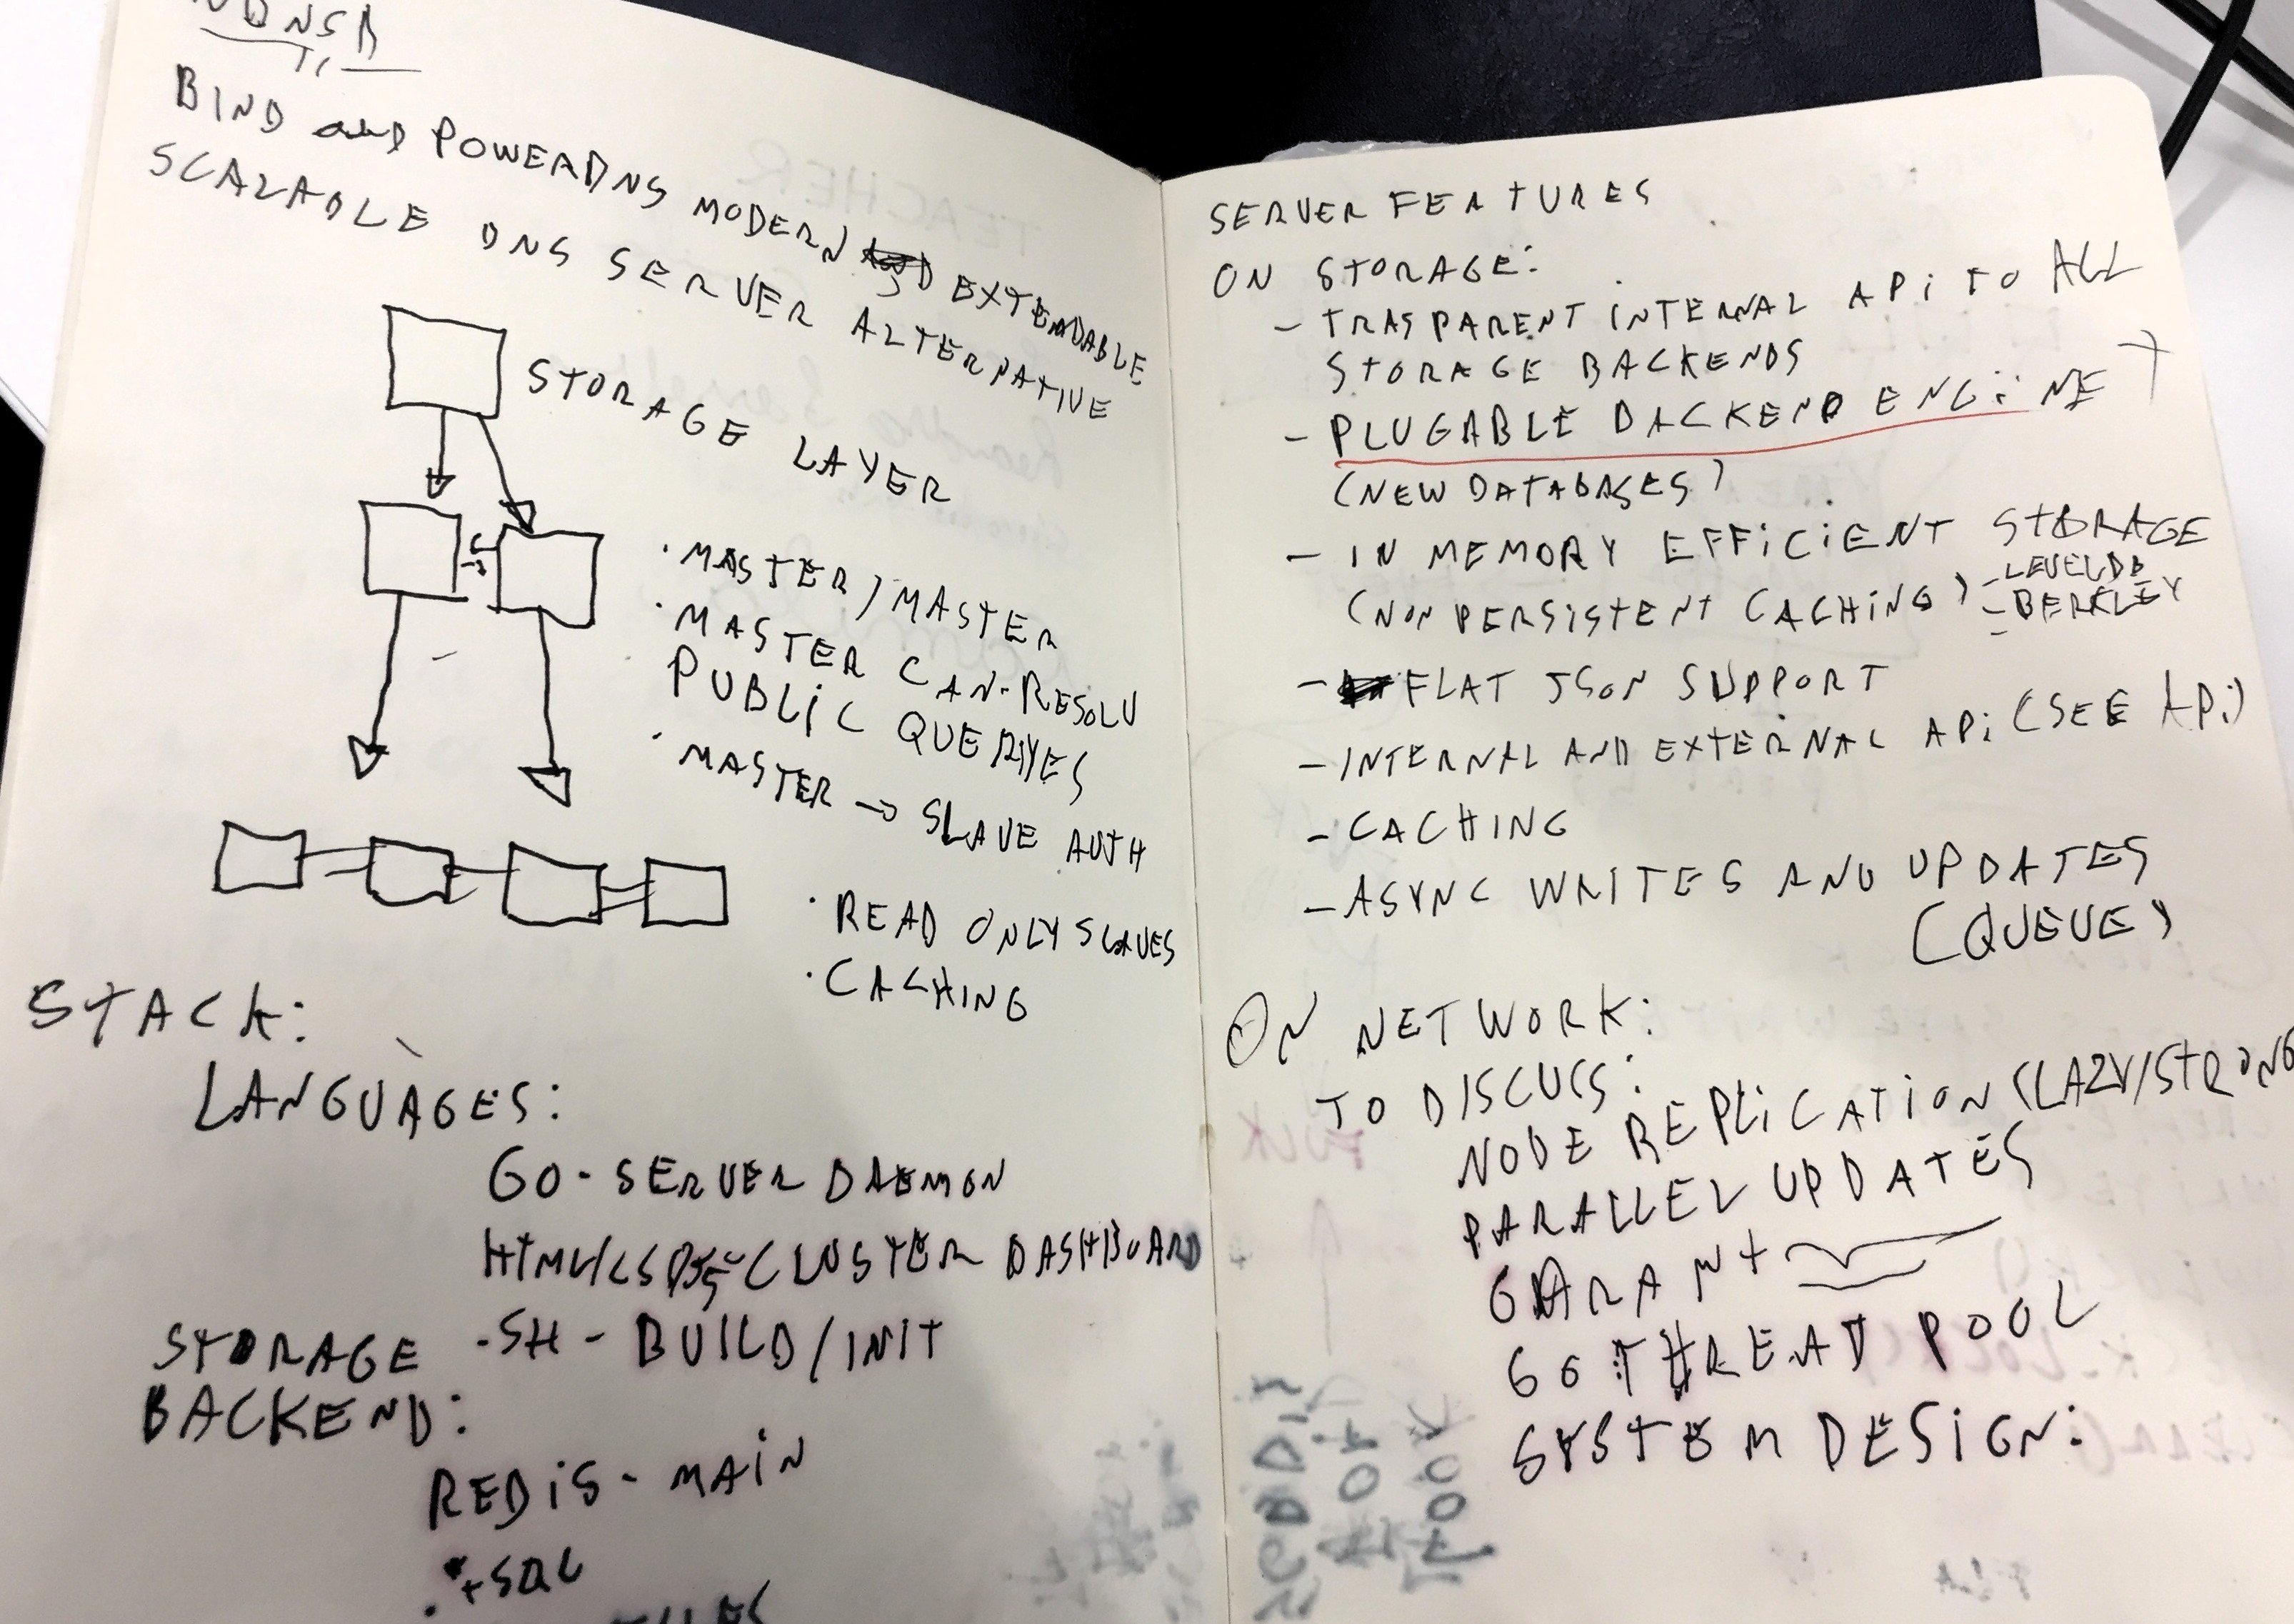 BIND and POWERDNS MODERN EXTENDABLE
SCALABLE DNS SERVER ALTERNATIVE
STORAGE LAYER
· MASTER/MASTER
· MASTER CAN RESOLV
PUBLIC QUERIYES
· MASTER → SLAVE AUTH
· READ ONLY SLAVES
· CACHING
STACK:
LANGUAGES:
GO - SERVER DAEMON
CLUSTER DASHBOARD
- SH - BUILD/INIT
STORAGE
BACKEND:
REDIS - MAIN
SQL
SERVER FEATURES
ON STORAGE:
- TRASPARENT INTERNAL API TO ALL
STORAGE BACKENDS
- PLUGABLE BACKEND ENGINE
(NEW DATABASES)
- IN MEMORY EFFICIENT STORAGE
(NON PERSISTENT CACHING)
- LEVELDB
- BERKLEY
- FLAT JSON SUPPORT
- INTERNAL AND EXTERNAL API (SEE API)
- CACHING
- ASYNC WRITES AND UPDATES
(QUEUE)
ON NETWORK:
TO DISCUSS:
NODE REPLICATION (LAZY/STRONG
PARALLEL UPDATES
GO THREAD POOL
SYSTEM DESIGN: